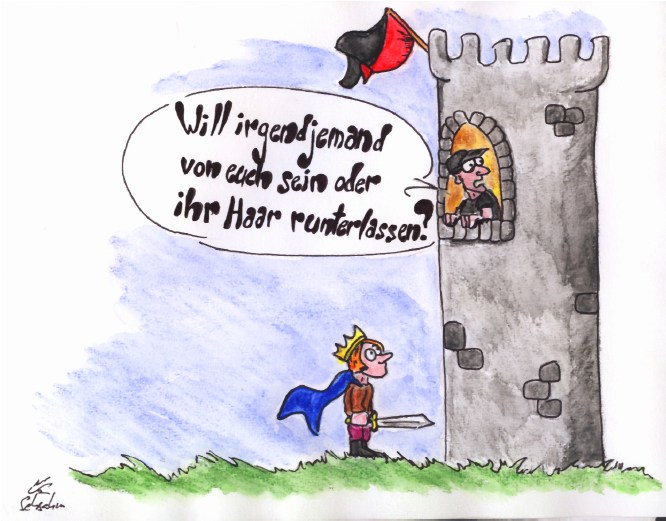 Will irgendjemand
von euch sein oder
ihr Haar runterlassen?